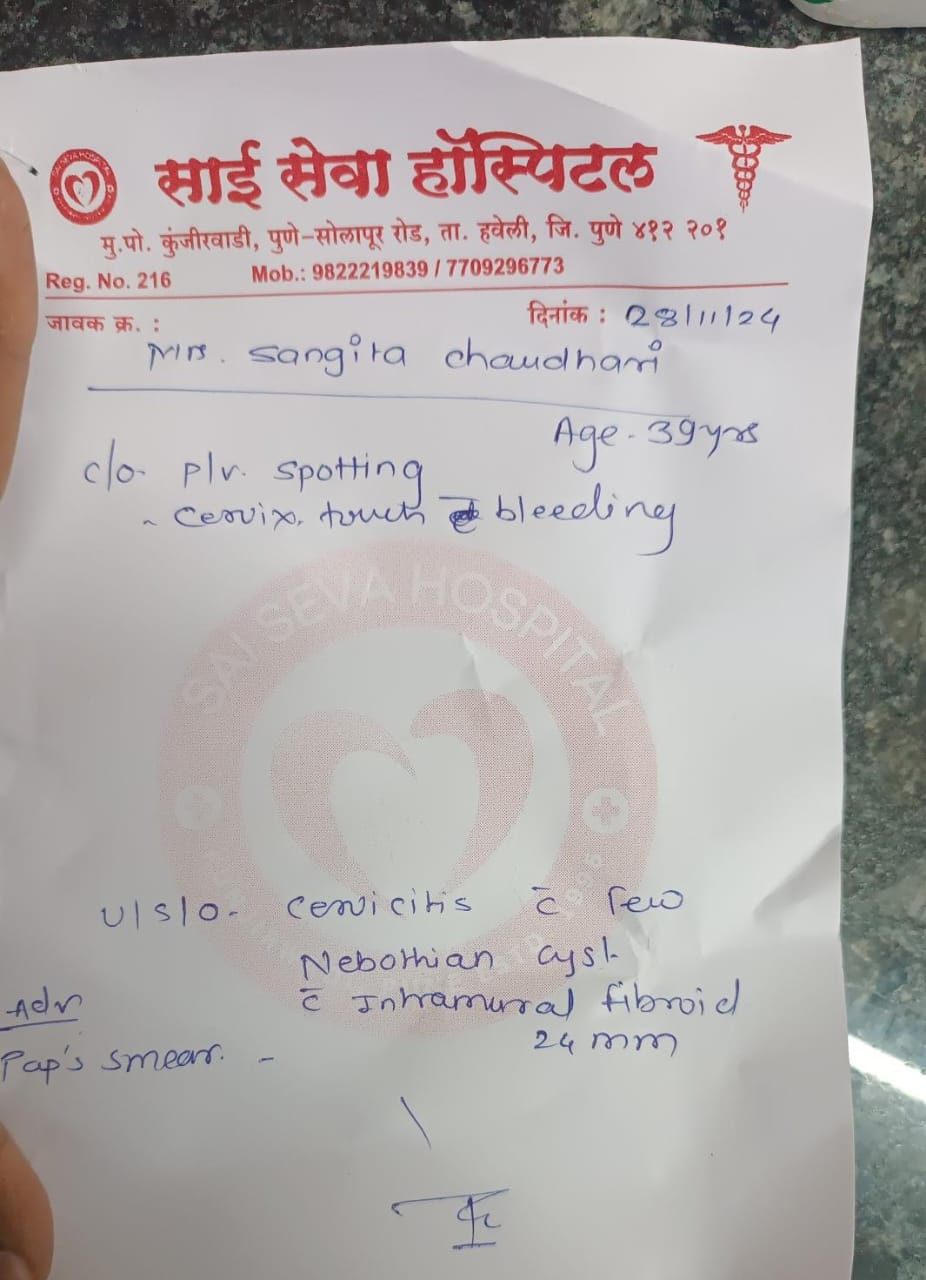 साई सेवा हॉस्पिटल
मु.पो. कुंजीरवाडी, पुणे-सोलापूर रोड, ता. हवेली, जि. पुणे ४१२ २०१
Reg. No. 216 Mob.: 9822219839 / 7709296773
जावक क्र. : दिनांक : 28/11/24
Mrs. Sangita Chaudhari
Age - 39 yrs
c/o - P/v. spotting
- cervix. touch c̄ bleeding
SAI SEVA HOSPITAL
U/S/O - Cervicitis c̄ few
Nebothian cyst
c̄ Intramural fibroid
24 mm
Adv
Pap's smear. -